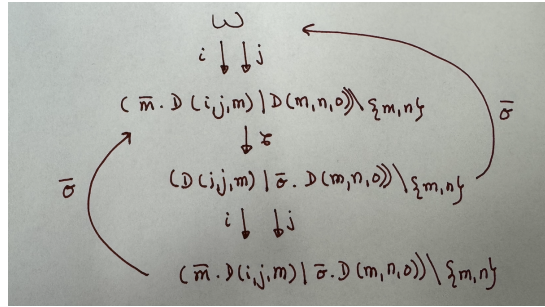 W
i j
(m̄. D(i,j,m) | D(m,n,o))\{m,n}
τ
(D(i,j,m) | ō. D(m,n,o))\{m,n}
ō
ō
i j
(m̄. D(i,j,m) | ō. D(m,n,o))\{m,n}